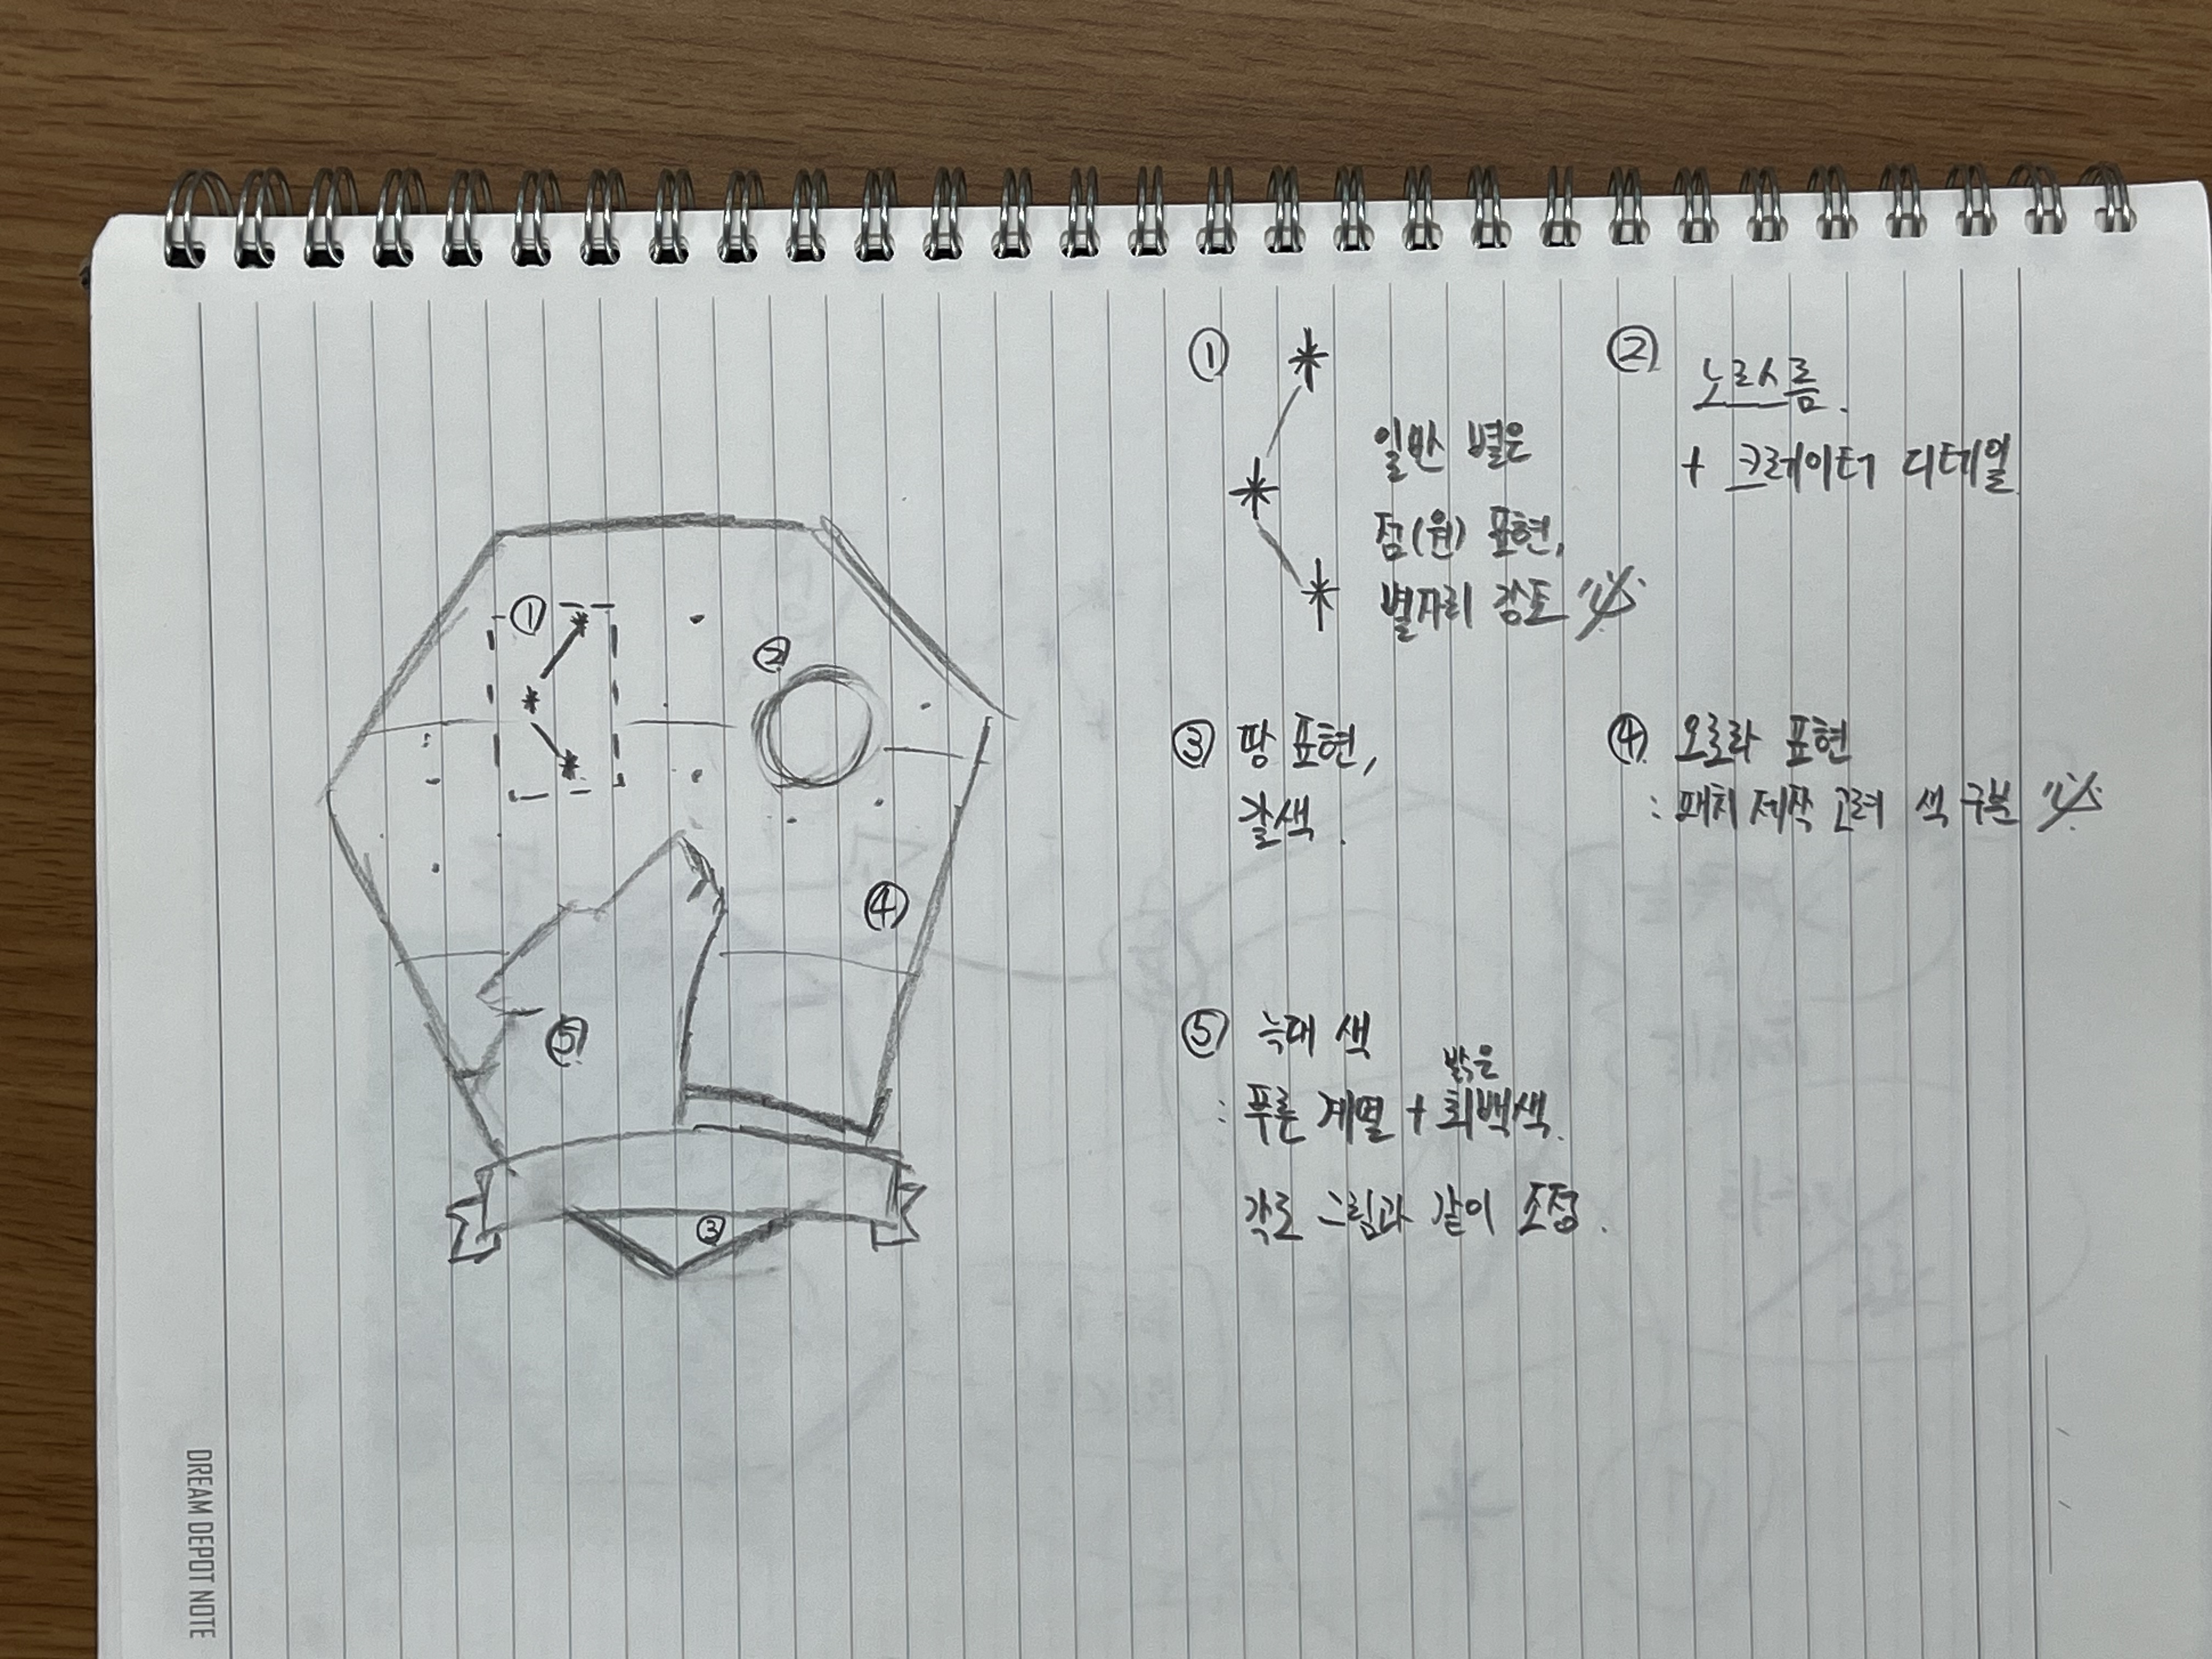 ①
②
⑤
④
③
①
일반 별은
점(원) 표현,
별자리 강조
②
노르스름.
+ 크레이터 디테일
③ 땅 표현,
갈색.
④ 오로라 표현
: 패치 제작 고려 색 구분
⑤ 늑대 색
밝은
: 푸른 계열 + 회백색.
각도 그림과 같이 조정.
DREAM DEPOT NOTE